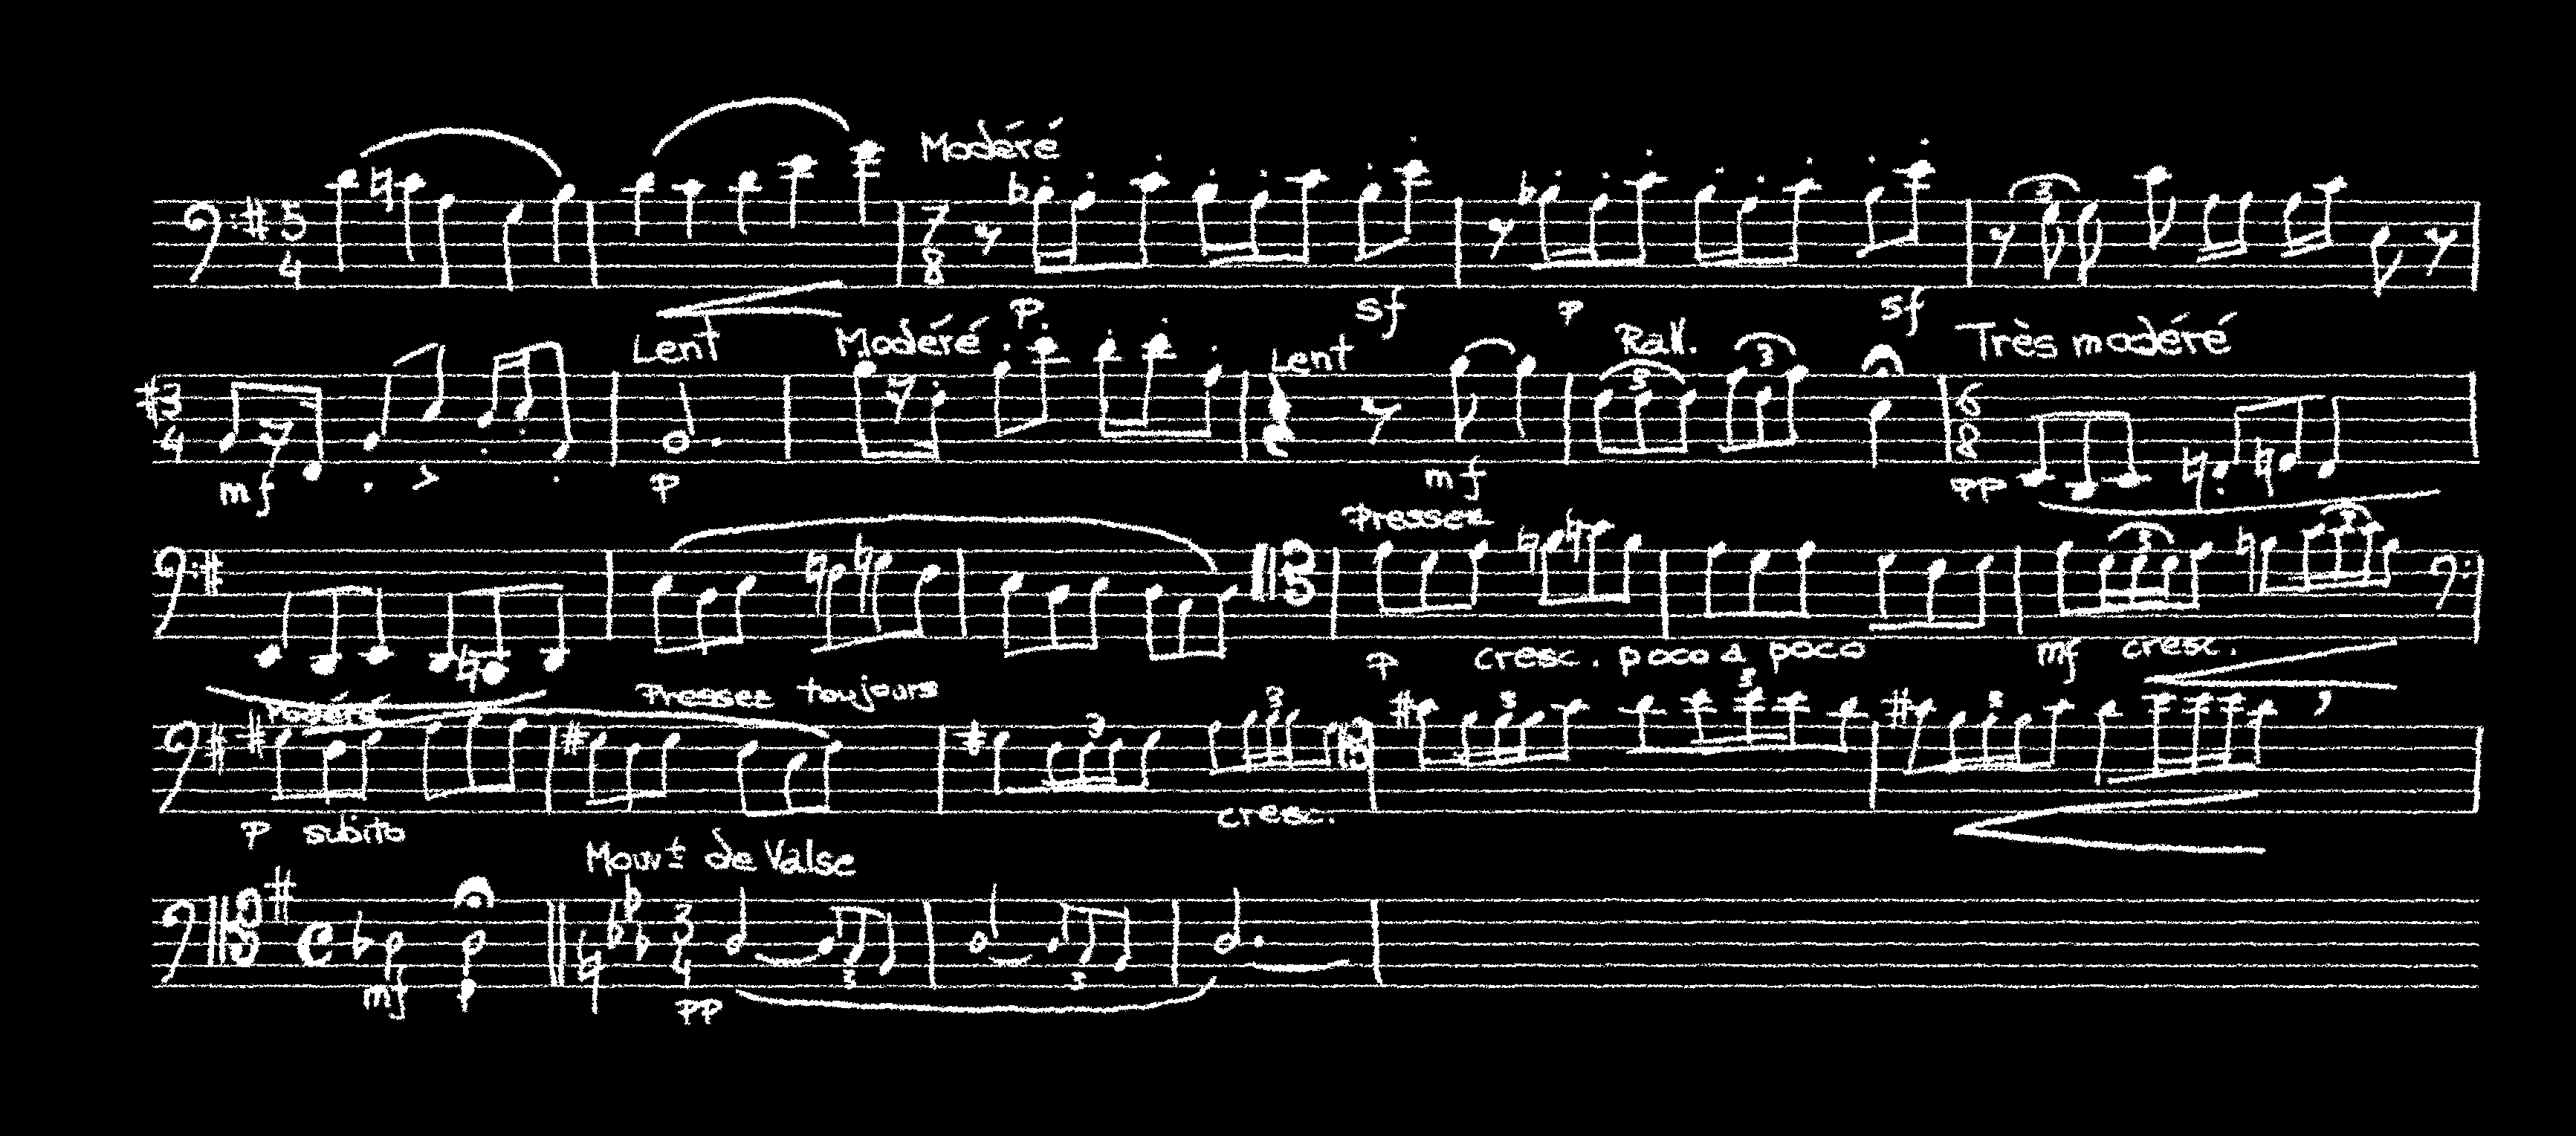 Modéré
p sf p sf
Lent Modéré Lent Rall. Très modéré
mf p mf pp
Pressez
p cresc. poco a poco mf cresc.
Modéré Pressez toujours
p subito cresc.
Mouvt de Valse
mf p pp